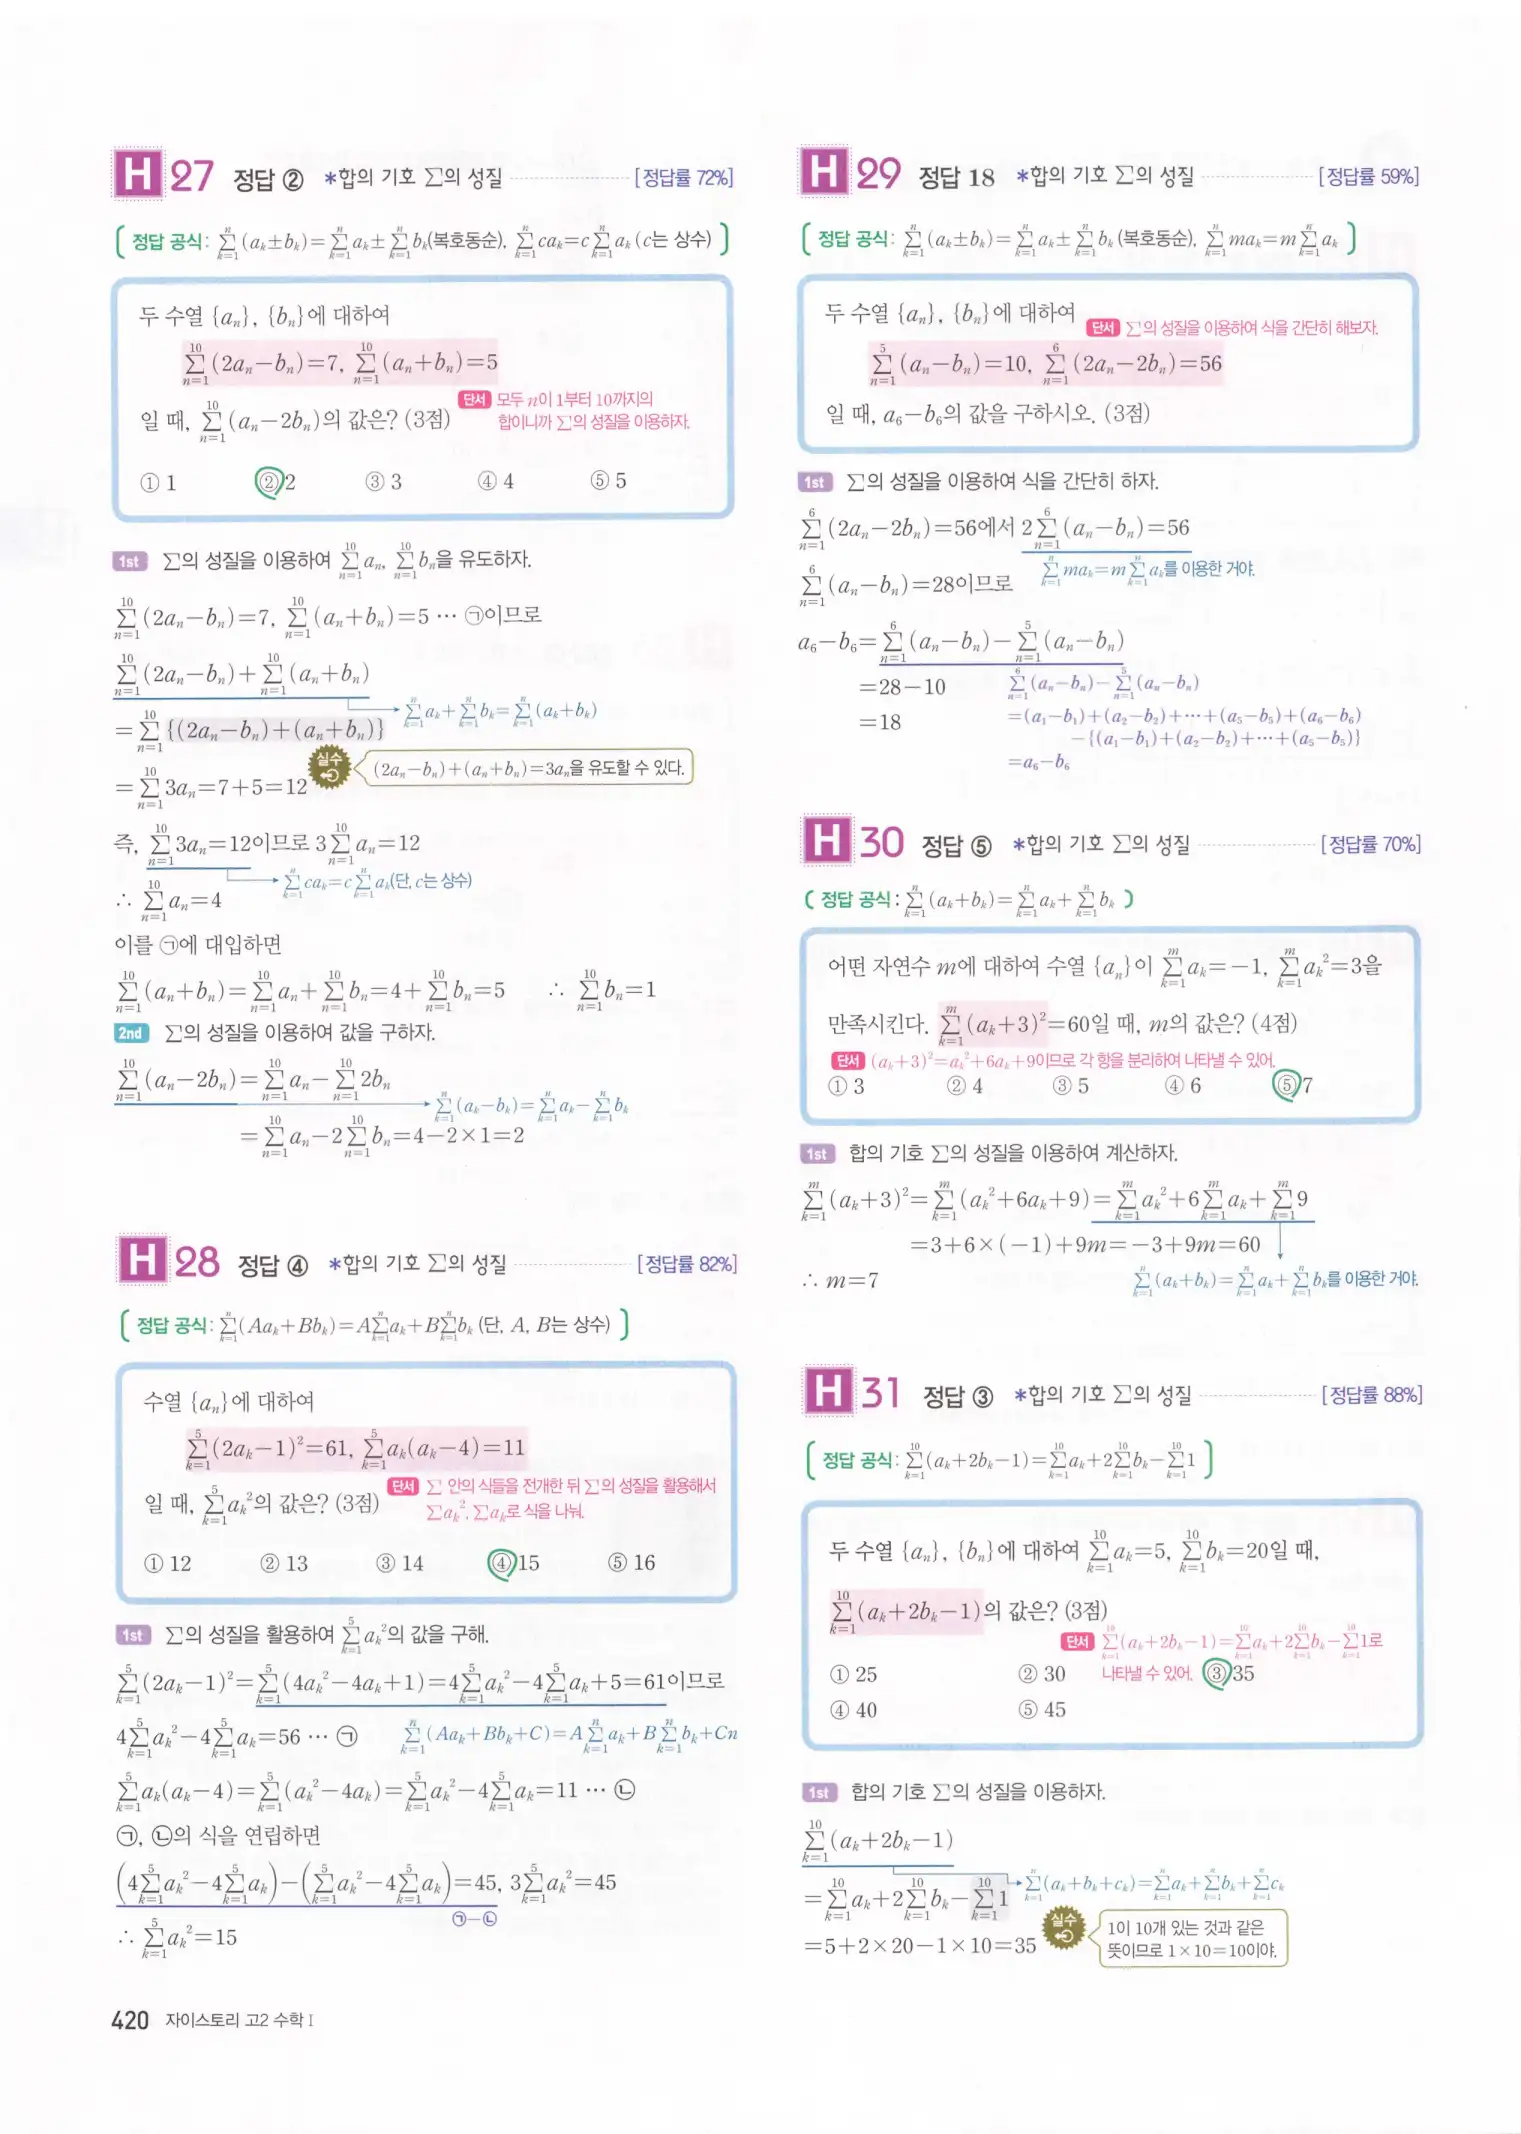 H 27 정답 ② *합의 기호 ∑의 성질 [정답률 72%]
( 정답 공식: ∑_{k=1}^{n}(a_k±b_k)=∑_{k=1}^{n}a_k±∑_{k=1}^{n}b_k(복호동순), ∑_{k=1}^{n}ca_k=c∑_{k=1}^{n}a_k (c는 상수) )
두 수열 {a_n}, {b_n}에 대하여
∑_{n=1}^{10}(2a_n-b_n)=7, ∑_{n=1}^{10}(a_n+b_n)=5
단서 모두 n이 1부터 10까지의
합이니까 ∑의 성질을 이용하자.
일 때, ∑_{n=1}^{10}(a_n-2b_n)의 값은? (3점)
① 1 ② 2 ③ 3 ④ 4 ⑤ 5
1st ∑의 성질을 이용하여 ∑_{n=1}^{10}a_n, ∑_{n=1}^{10}b_n을 유도하자.
∑_{n=1}^{10}(2a_n-b_n)=7, ∑_{n=1}^{10}(a_n+b_n)=5 ⋯ ㉠이므로
∑_{n=1}^{10}(2a_n-b_n)+∑_{n=1}^{10}(a_n+b_n)
∑_{k=1}^{n}a_k+∑_{k=1}^{n}b_k=∑_{k=1}^{n}(a_k+b_k)
=∑_{n=1}^{10}{(2a_n-b_n)+(a_n+b_n)}
실수 (2a_n-b_n)+(a_n+b_n)=3a_n을 유도할 수 있다.
=∑_{n=1}^{10}3a_n=7+5=12
즉, ∑_{n=1}^{10}3a_n=12이므로 3∑_{n=1}^{10}a_n=12
∑_{k=1}^{n}ca_k=c∑_{k=1}^{n}a_k(단, c는 상수)
∴ ∑_{n=1}^{10}a_n=4
이를 ㉠에 대입하면
∑_{n=1}^{10}(a_n+b_n)=∑_{n=1}^{10}a_n+∑_{n=1}^{10}b_n=4+∑_{n=1}^{10}b_n=5 ∴ ∑_{n=1}^{10}b_n=1
2nd ∑의 성질을 이용하여 값을 구하자.
∑_{n=1}^{10}(a_n-2b_n)=∑_{n=1}^{10}a_n-∑_{n=1}^{10}2b_n
∑_{k=1}^{n}(a_k-b_k)=∑_{k=1}^{n}a_k-∑_{k=1}^{n}b_k
=∑_{n=1}^{10}a_n-2∑_{n=1}^{10}b_n=4-2×1=2
H 28 정답 ④ *합의 기호 ∑의 성질 [정답률 82%]
( 정답 공식: ∑_{k=1}^{n}(Aa_k+Bb_k)=A∑_{k=1}^{n}a_k+B∑_{k=1}^{n}b_k (단, A, B는 상수) )
수열 {a_n}에 대하여
∑_{k=1}^{5}(2a_k-1)²=61, ∑_{k=1}^{5}a_k(a_k-4)=11
단서 ∑ 안의 식들을 전개한 뒤 ∑의 성질을 활용해서
∑a_k², ∑a_k로 식을 나눠.
일 때, ∑_{k=1}^{5}a_k²의 값은? (3점)
① 12 ② 13 ③ 14 ④ 15 ⑤ 16
1st ∑의 성질을 활용하여 ∑_{k=1}^{5}a_k²의 값을 구해.
∑_{k=1}^{5}(2a_k-1)²=∑_{k=1}^{5}(4a_k²-4a_k+1)=4∑_{k=1}^{5}a_k²-4∑_{k=1}^{5}a_k+5=61이므로
4∑_{k=1}^{5}a_k²-4∑_{k=1}^{5}a_k=56 ⋯ ㉠ ∑_{k=1}^{n}(Aa_k+Bb_k+C)=A∑_{k=1}^{n}a_k+B∑_{k=1}^{n}b_k+Cn
∑_{k=1}^{5}a_k(a_k-4)=∑_{k=1}^{5}(a_k²-4a_k)=∑_{k=1}^{5}a_k²-4∑_{k=1}^{5}a_k=11 ⋯ ㉡
㉠, ㉡의 식을 연립하면
(4∑_{k=1}^{5}a_k²-4∑_{k=1}^{5}a_k)-(∑_{k=1}^{5}a_k²-4∑_{k=1}^{5}a_k)=45, 3∑_{k=1}^{5}a_k²=45
㉠-㉡
∴ ∑_{k=1}^{5}a_k²=15
H 29 정답 18 *합의 기호 ∑의 성질 [정답률 59%]
( 정답 공식: ∑_{k=1}^{n}(a_k±b_k)=∑_{k=1}^{n}a_k±∑_{k=1}^{n}b_k (복호동순), ∑_{k=1}^{n}ma_k=m∑_{k=1}^{n}a_k )
두 수열 {a_n}, {b_n}에 대하여
단서 ∑의 성질을 이용하여 식을 간단히 해보자.
∑_{n=1}^{5}(a_n-b_n)=10, ∑_{n=1}^{6}(2a_n-2b_n)=56
일 때, a_6-b_6의 값을 구하시오. (3점)
1st ∑의 성질을 이용하여 식을 간단히 하자.
∑_{n=1}^{6}(2a_n-2b_n)=56에서 2∑_{n=1}^{6}(a_n-b_n)=56
∑_{k=1}^{n}ma_k=m∑_{k=1}^{n}a_k를 이용한 거야.
∑_{n=1}^{6}(a_n-b_n)=28이므로
a_6-b_6=∑_{n=1}^{6}(a_n-b_n)-∑_{n=1}^{5}(a_n-b_n)
=28-10 ∑_{n=1}^{6}(a_n-b_n)-∑_{n=1}^{5}(a_n-b_n)
=18 =(a_1-b_1)+(a_2-b_2)+⋯+(a_5-b_5)+(a_6-b_6)
-{(a_1-b_1)+(a_2-b_2)+⋯+(a_5-b_5)}
=a_6-b_6
H 30 정답 ⑤ *합의 기호 ∑의 성질 [정답률 70%]
( 정답 공식: ∑_{k=1}^{n}(a_k+b_k)=∑_{k=1}^{n}a_k+∑_{k=1}^{n}b_k )
어떤 자연수 m에 대하여 수열 {a_n}이 ∑_{k=1}^{m}a_k=-1, ∑_{k=1}^{m}a_k²=3을
만족시킨다. ∑_{k=1}^{m}(a_k+3)²=60일 때, m의 값은? (4점)
단서 (a_k+3)²=a_k²+6a_k+9이므로 각 항을 분리하여 나타낼 수 있어.
① 3 ② 4 ③ 5 ④ 6 ⑤ 7
1st 합의 기호 ∑의 성질을 이용하여 계산하자.
∑_{k=1}^{m}(a_k+3)²=∑_{k=1}^{m}(a_k²+6a_k+9)=∑_{k=1}^{m}a_k²+6∑_{k=1}^{m}a_k+∑_{k=1}^{m}9
=3+6×(-1)+9m=-3+9m=60
∴ m=7 ∑_{k=1}^{n}(a_k+b_k)=∑_{k=1}^{n}a_k+∑_{k=1}^{n}b_k를 이용한 거야.
H 31 정답 ③ *합의 기호 ∑의 성질 [정답률 88%]
( 정답 공식: ∑_{k=1}^{10}(a_k+2b_k-1)=∑_{k=1}^{10}a_k+2∑_{k=1}^{10}b_k-∑_{k=1}^{10}1 )
두 수열 {a_n}, {b_n}에 대하여 ∑_{k=1}^{10}a_k=5, ∑_{k=1}^{10}b_k=20일 때,
∑_{k=1}^{10}(a_k+2b_k-1)의 값은? (3점)
단서 ∑_{k=1}^{10}(a_k+2b_k-1)=∑_{k=1}^{10}a_k+2∑_{k=1}^{10}b_k-∑_{k=1}^{10}1로
나타낼 수 있어.
① 25 ② 30 ③ 35
④ 40 ⑤ 45
1st 합의 기호 ∑의 성질을 이용하자.
∑_{k=1}^{10}(a_k+2b_k-1)
∑_{k=1}^{n}(a_k+b_k+c_k)=∑_{k=1}^{n}a_k+∑_{k=1}^{n}b_k+∑_{k=1}^{n}c_k
=∑_{k=1}^{10}a_k+2∑_{k=1}^{10}b_k-∑_{k=1}^{10}1
실수 1이 10개 있는 것과 같은
뜻이므로 1×10=10이야.
=5+2×20-1×10=35
420 자이스토리 고2 수학 I